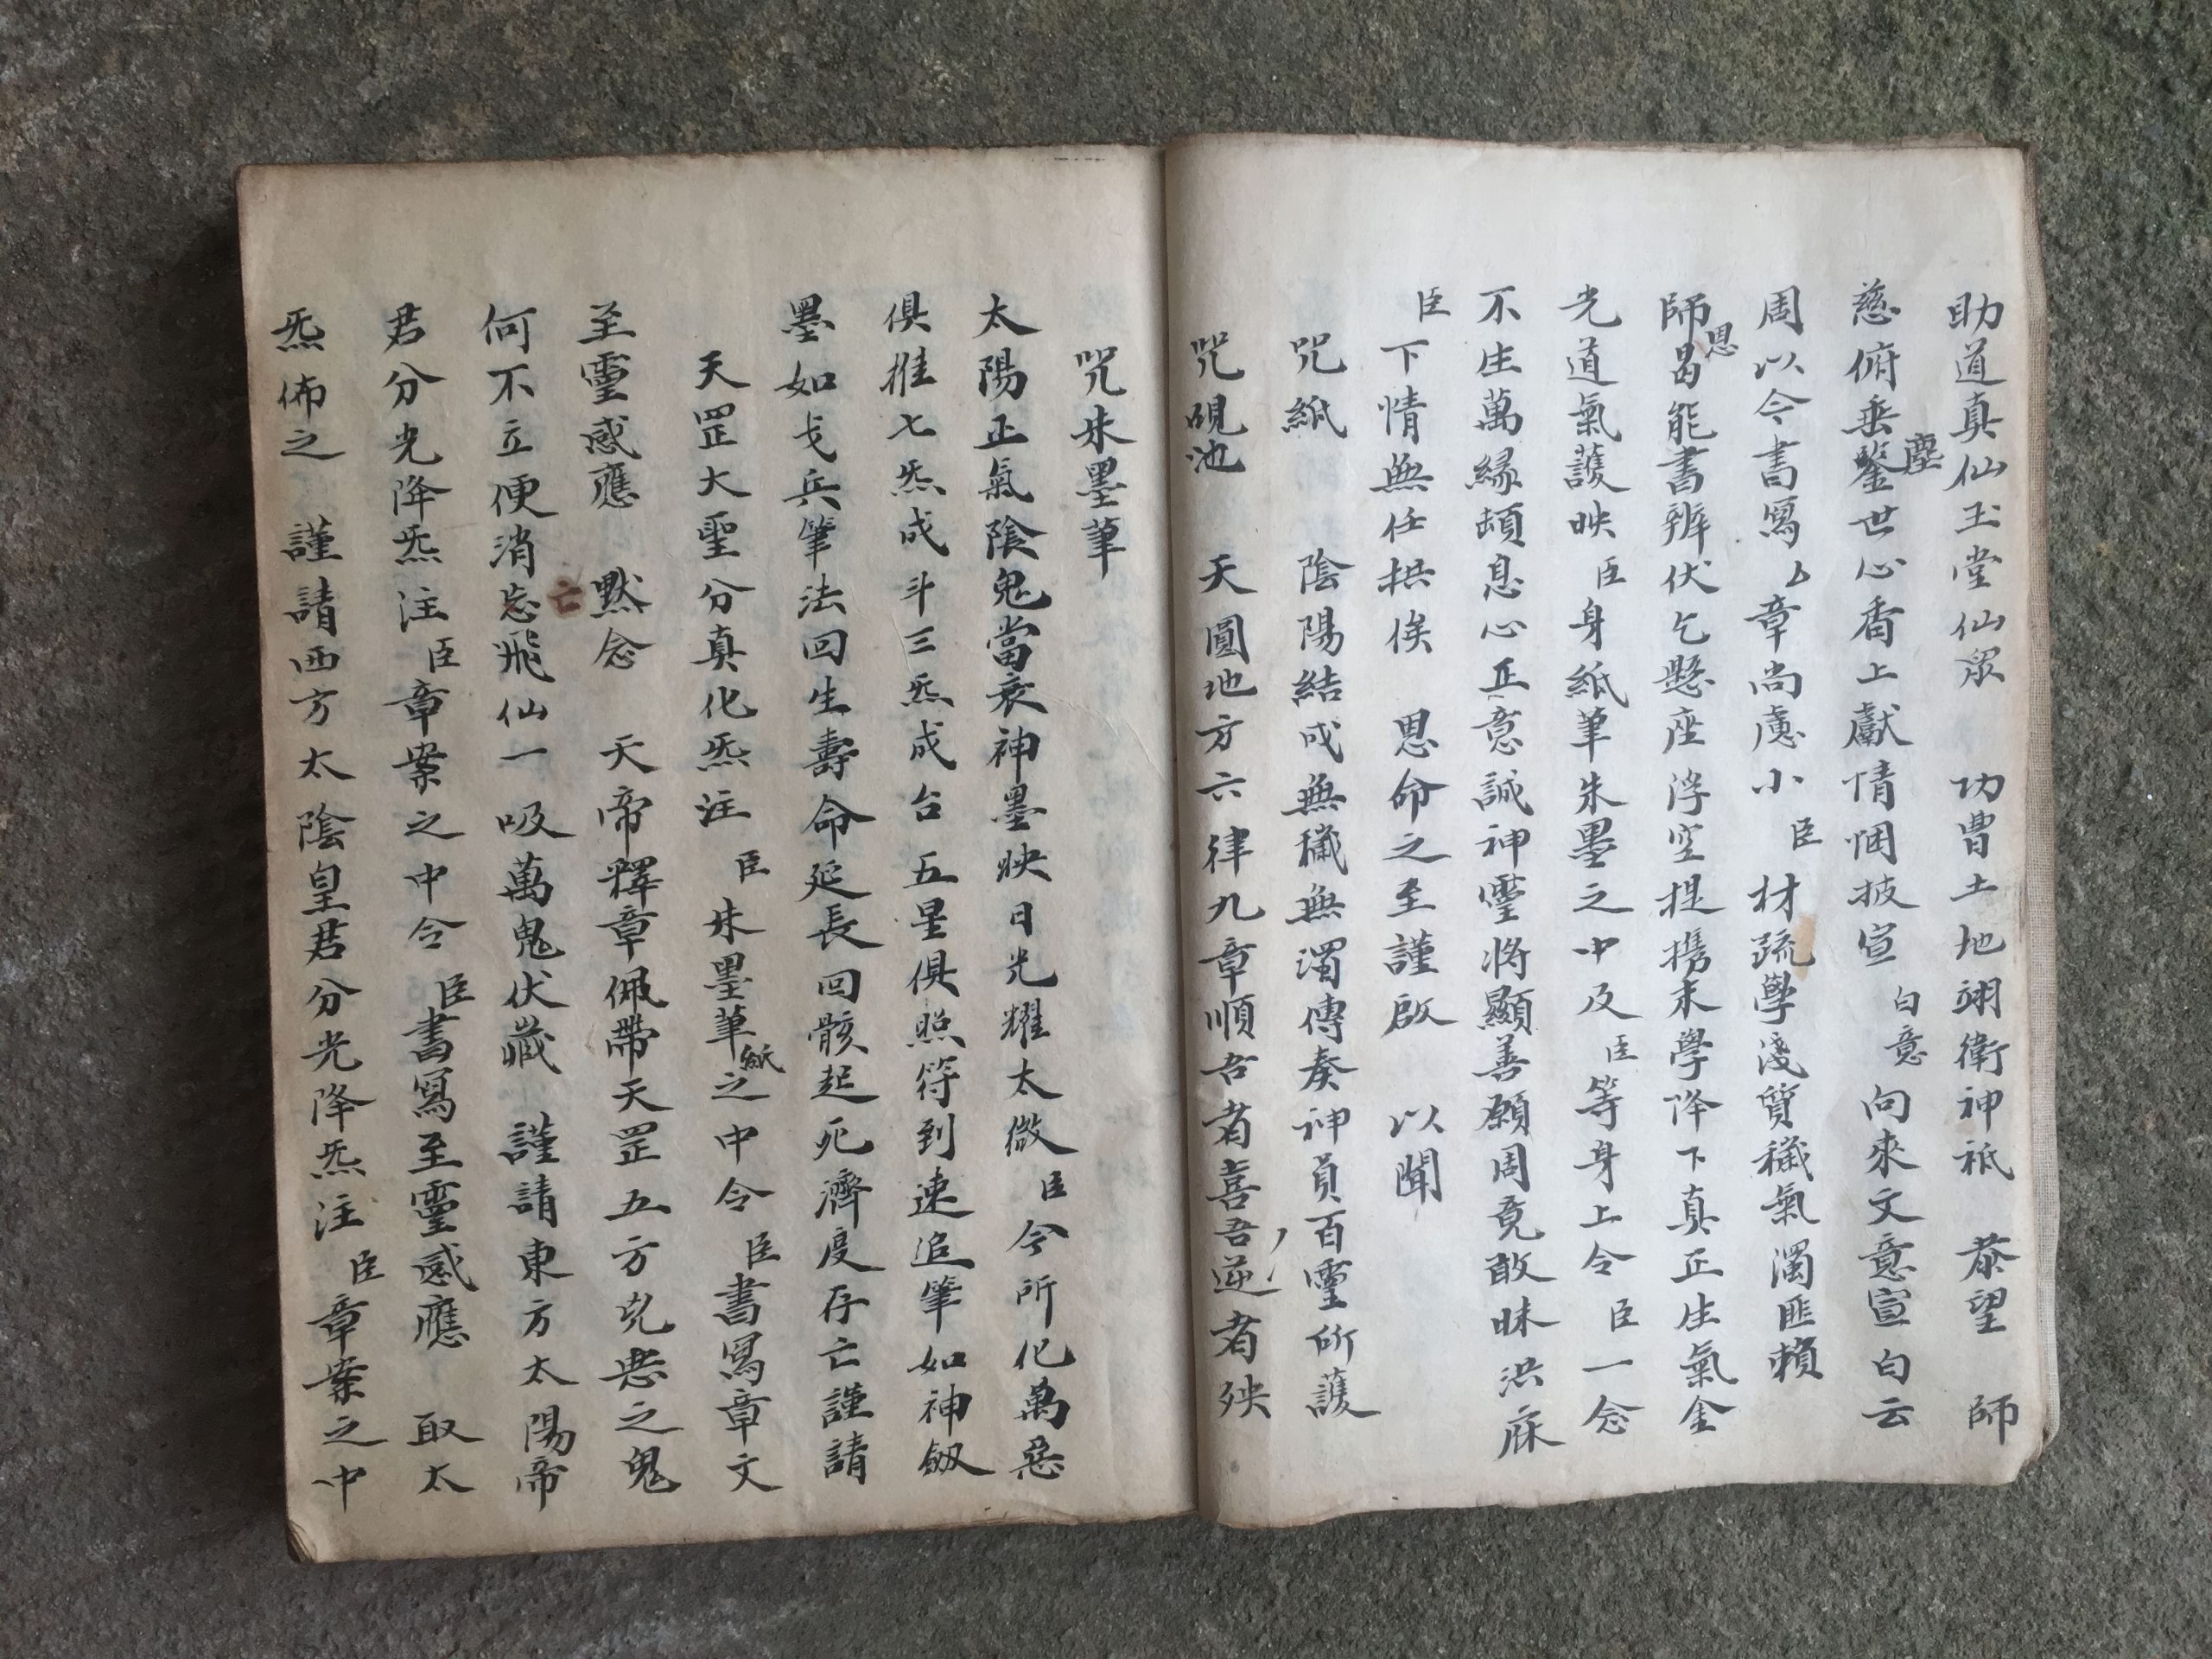 助道真仙玉堂仙眾 功曹土地翊衛神祇 恭望 師
慈俯垂鑒塵世心香上獻情悃披宣 白意 向來文意宣白云
周以今書寫 章尚慮小臣材疏學淺質穢氣濁匪賴
師恩曷能書辨伏乞懸座浮空提携末學降下真正生氣金
光道氣護映臣身紙筆朱墨之中及臣等身上令臣一念
不生萬緣頓息心正意誠神靈將顯善願周竟敢昧洪庥
臣下情無任拱俟 恩命之至謹啟 以聞
咒紙 陰陽結成無穢無濁傳奏神員百靈所護
咒硯池 天圓地方六律九章順吾者喜吾逆者殃
咒朱墨筆
太陽正氣陰鬼當衰神墨映日光耀太微臣今所化萬惡
俱摧七炁成斗三炁成台五星俱照符到速追筆如神劔
墨如戈兵筆法回生壽命延長回骸起死濟度存亡謹請
天罡大聖分真化炁注臣朱墨筆紙之中令臣書寫章文
至靈感應 默念 天帝釋章佩帶天罡五方兇惡之鬼
何不立便消忘亡飛仙一吸萬鬼伏藏 謹請東方太陽帝
君分光降炁注臣章案之中令臣書寫至靈感應 取太
炁佈之 謹請西方太陰皇君分光降炁注臣章案之中